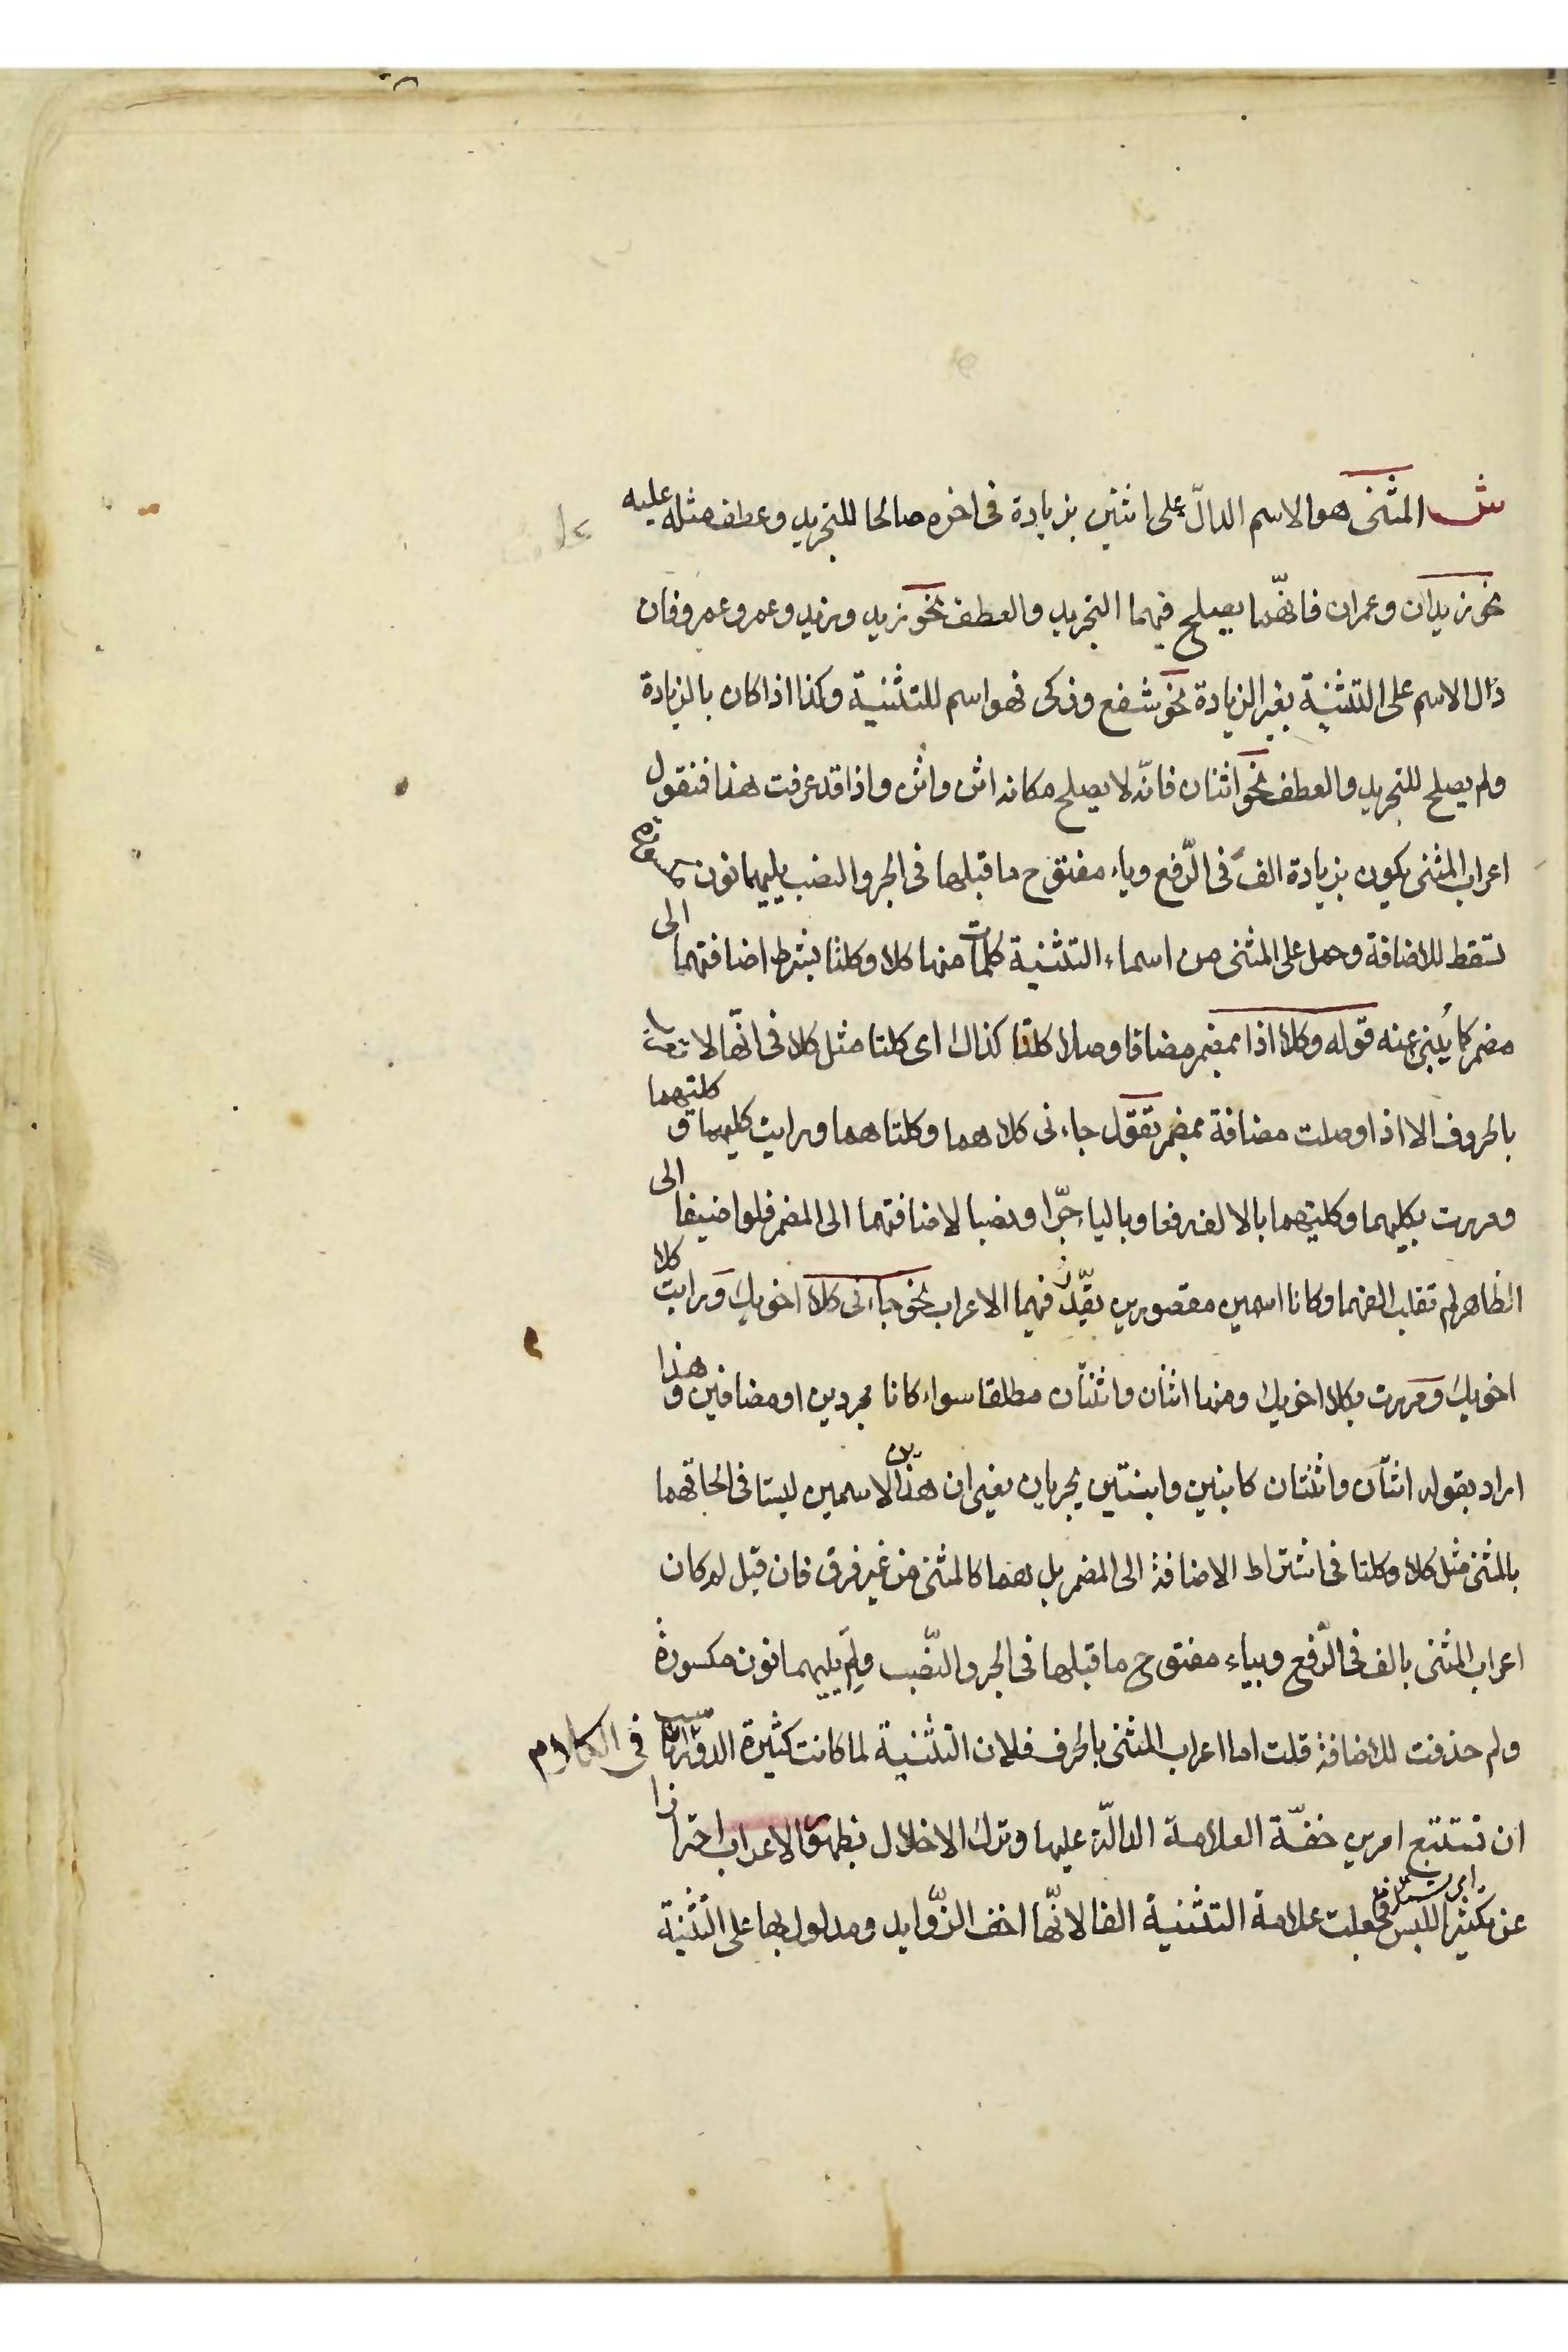 ش المثنى هو الاسم الدالّ على اثنين بزيادة فى اخره صالحا للتجريد وعطف مثله عليه
نحو زيدان وعمران فانهّما يصلح فيهما التجريد والعطف نحو زيد وزيد وعمرو وعمرو فان
دال الاسم على التثنية بغير الزيادة نحو شفع وزكى فهو اسم للتثنية وكذا اذا كان بالزيادة
ولم يصلح للتجريد والعطف نحو اثنان فانّه لا يصلح مكانه اثن واثن واذا قد عرفت هذا فنقول
اعراب المثنى يكون بزيادة الف فى الرّفع وياء مفتوح ما قبلها فى الجر والنصب يليهما نون مكسورة
تسقط للاضافة وحمل على المثنى من اسماء التثنية كلمات منها كلا وكلتا بشرط اضافتهما الى
مضمر كما يُنبئ عنه قوله وكلا اذا بمضمر مضافا وصلا كلتا كذاك اى كلتا مثل كلا فى انّها لا تعرب
بالحروف الا اذا وصلت مضافة بمضمر تقول جاءنى كلاهما وكلتاهما ورايت كليهما و كلتيهما
ومررت بكليهما وكلتيهما بالالف رفعا وبالياء جرّا ونصبا لاضافتهما الى المضمر فلو اضيفا الى
الظاهر لم تقلب الفهما وكانا اسمين مقصورين يقدّر فيهما الاعراب نحو جاءنى كلا اخويك ورايت كلا
اخويك ومررت بكلا اخويك ومنها اثنان واثنتان مطلقا سواء كانا مجردين او مضافين و هذا
اراد بقوله اثنان واثنتان كابنين وابنتين يجريان يعنى ان هذين الاسمين ليستا فى الحاقهما
بالمثنى مثل كلا وكلتا فى اشتراط الاضافة الى المضمر بل هما كالمثنى من غير فرق فان قيل لم كان
اعراب المثنى بالف فى الرّفع وبياء مفتوح ما قبلها فى الجر والنّصب ولِمَ يليهما نون مكسورة
ولم حذفت للاضافة قلت اما اعراب المثنى بالحرف فلان التثنية لما كانت كثيرة الدوران فى الكلام
ان تستتبع امرين خفّة العلامة الدالّة عليها وترك الاخلال بظهور الاعراب احترازا
عن تكثير اللبس فجعلت علامة التثنية الفا لانّها اخف الزّوايد ومدلول بها على التثنية